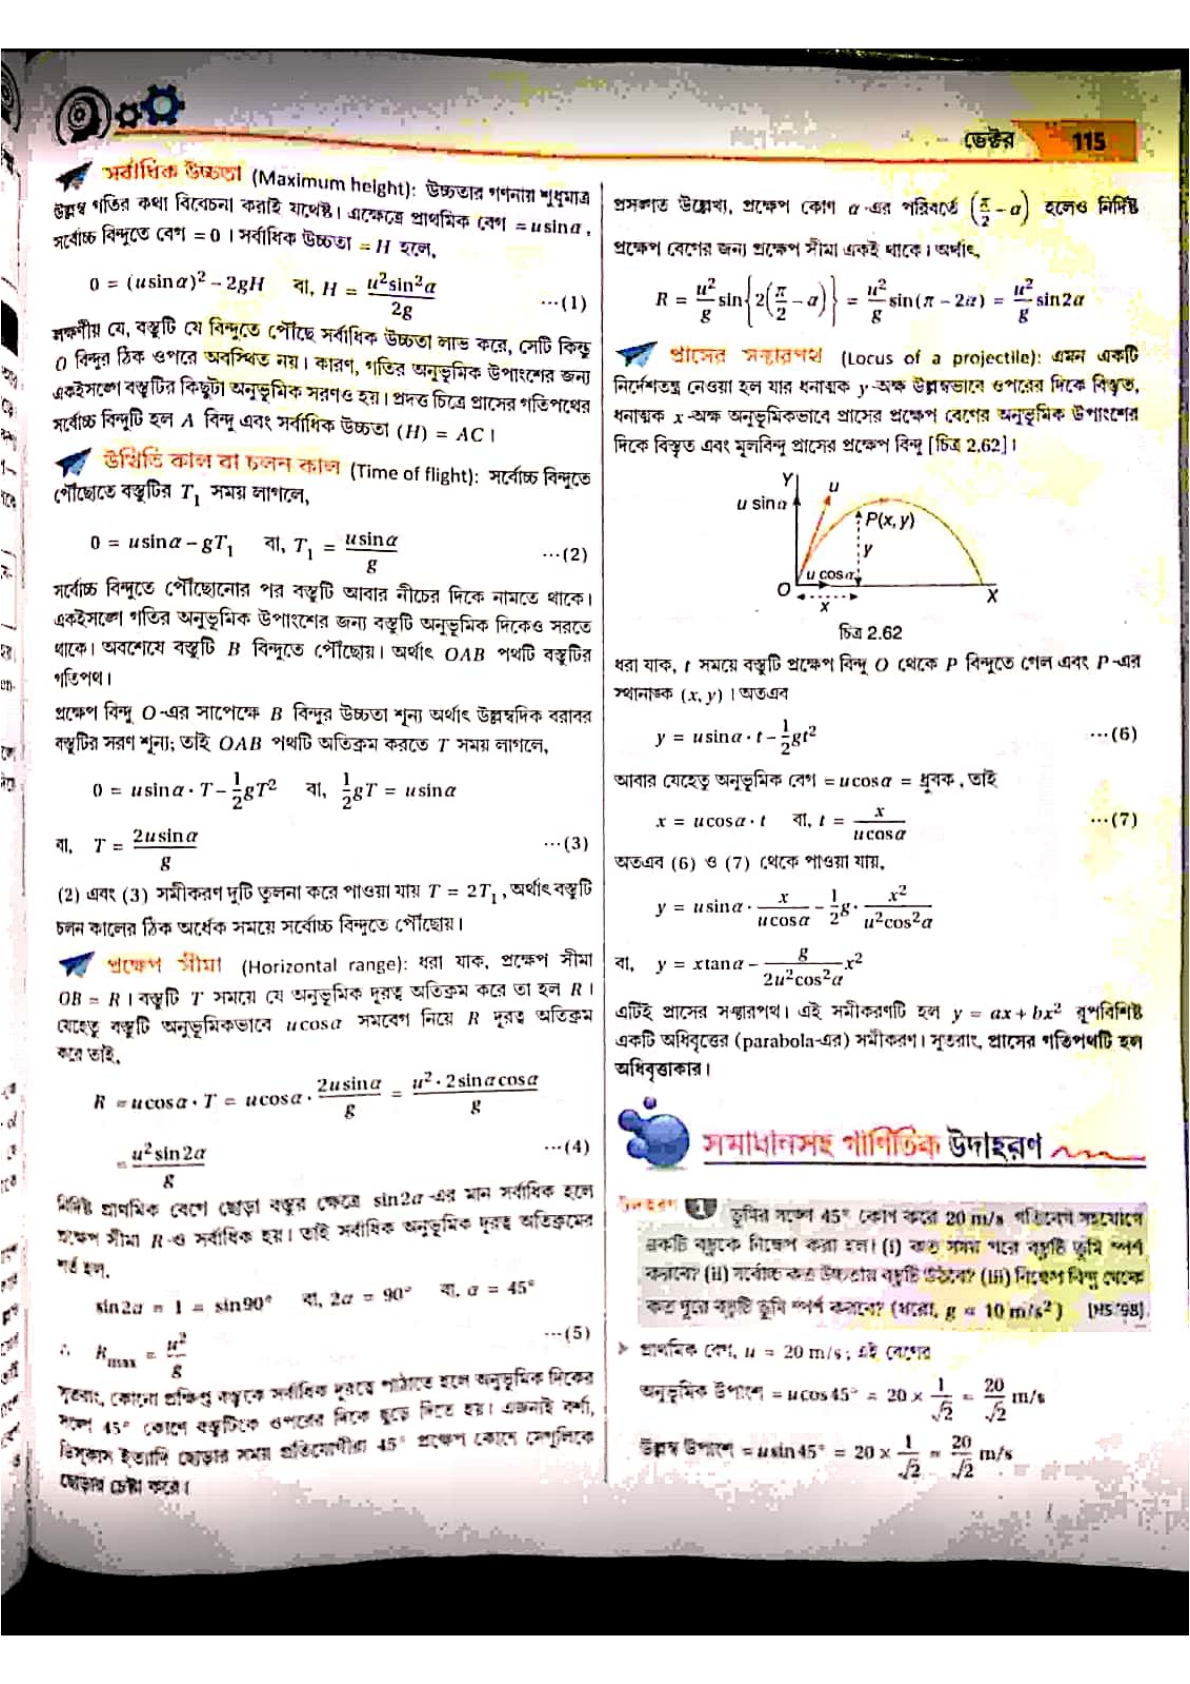 ভেক্টর 115
সর্বাধিক উচ্চতা (Maximum height): উচ্চতার গণনায় শুধুমাত্র
উল্লম্ব গতির কথা বিবেচনা করাই যথেষ্ট। এক্ষেত্রে প্রাথমিক বেগ = u sin α,
সর্বোচ্চ বিন্দুতে বেগ = 0 । সর্বাধিক উচ্চতা = H হলে,
0 = (u sin α)² − 2gH বা, H = u² sin² α / 2g ···(1)
লক্ষণীয় যে, বস্তুটি যে বিন্দুতে পৌঁছে সর্বাধিক উচ্চতা লাভ করে, সেটি কিন্তু
O বিন্দুর ঠিক ওপরে অবস্থিত নয়। কারণ, গতির অনুভূমিক উপাংশের জন্য
একইসঙ্গে বস্তুটির কিছুটা অনুভূমিক সরণও হয়। প্রদত্ত চিত্রে প্রাসের গতিপথের
সর্বোচ্চ বিন্দুটি হল A বিন্দু এবং সর্বাধিক উচ্চতা (H) = AC ।
উত্থিতি কাল বা চলন কাল (Time of flight): সর্বোচ্চ বিন্দুতে
পৌঁছোতে বস্তুটির T₁ সময় লাগলে,
0 = u sin α − gT₁ বা, T₁ = u sin α / g ···(2)
সর্বোচ্চ বিন্দুতে পৌঁছোনোর পর বস্তুটি আবার নীচের দিকে নামতে থাকে।
একইসঙ্গে গতির অনুভূমিক উপাংশের জন্য বস্তুটি অনুভূমিক দিকেও সরতে
থাকে। অবশেষে বস্তুটি B বিন্দুতে পৌঁছোয়। অর্থাৎ OAB পথটি বস্তুটির
গতিপথ।
প্রক্ষেপ বিন্দু O-এর সাপেক্ষে B বিন্দুর উচ্চতা শূন্য অর্থাৎ উল্লম্বদিক বরাবর
বস্তুটির সরণ শূন্য; তাই OAB পথটি অতিক্রম করতে T সময় লাগলে,
0 = u sin α · T − 1/2 gT² বা, 1/2 gT = u sin α
বা, T = 2u sin α / g ···(3)
(2) এবং (3) সমীকরণ দুটি তুলনা করে পাওয়া যায় T = 2T₁, অর্থাৎ বস্তুটি
চলন কালের ঠিক অর্ধেক সময়ে সর্বোচ্চ বিন্দুতে পৌঁছোয়।
প্রক্ষেপ সীমা (Horizontal range): ধরা যাক, প্রক্ষেপ সীমা
OB = R । বস্তুটি T সময়ে যে অনুভূমিক দূরত্ব অতিক্রম করে তা হল R ।
যেহেতু বস্তুটি অনুভূমিকভাবে u cos α সমবেগ নিয়ে R দূরত্ব অতিক্রম
করে তাই,
R = u cos α · T = u cos α · 2u sin α / g = u² · 2 sin α cos α / g
= u² sin 2α / g ···(4)
নির্দিষ্ট প্রাথমিক বেগে ছোড়া বস্তুর ক্ষেত্রে sin 2α -এর মান সর্বাধিক হলে
প্রক্ষেপ সীমা R-ও সর্বাধিক হয়। তাই সর্বাধিক অনুভূমিক দূরত্ব অতিক্রমের
শর্ত হল,
sin 2α = 1 = sin 90° বা, 2α = 90° বা, α = 45°
∴ R_max = u² / g ···(5)
সুতরাং, কোনো প্রক্ষিপ্ত বস্তুকে সর্বাধিক দূরত্বে পাঠাতে হলে অনুভূমিক দিকের
সঙ্গে 45° কোণে বস্তুটিকে ওপরের দিকে ছুড়ে দিতে হয়। এজন্যই বর্শা,
ডিসকাস ইত্যাদি ছোড়ার সময় প্রতিযোগীরা 45° প্রক্ষেপ কোণে সেগুলিকে
ছোড়ার চেষ্টা করে।
প্রসঙ্গত উল্লেখ্য, প্রক্ষেপ কোণ α-এর পরিবর্তে (π/2 − α) হলেও নির্দিষ্ট
প্রক্ষেপ বেগের জন্য প্রক্ষেপ সীমা একই থাকে। অর্থাৎ,
R = u²/g sin{2(π/2 − α)} = u²/g sin(π − 2α) = u²/g sin 2α
প্রাসের সঞ্চারপথ (Locus of a projectile): এমন একটি
নির্দেশতন্ত্র নেওয়া হল যার ধনাত্মক y-অক্ষ উল্লম্বভাবে ওপরের দিকে বিস্তৃত,
ধনাত্মক x-অক্ষ অনুভূমিকভাবে প্রাসের প্রক্ষেপ বেগের অনুভূমিক উপাংশের
দিকে বিস্তৃত এবং মূলবিন্দু প্রাসের প্রক্ষেপ বিন্দু [চিত্র 2.62]।
Y u
u sin α
P(x, y)
y
u cos α
O x X
চিত্র 2.62
ধরা যাক, t সময়ে বস্তুটি প্রক্ষেপ বিন্দু O থেকে P বিন্দুতে গেল এবং P-এর
স্থানাঙ্ক (x, y) । অতএব
y = u sin α · t − 1/2 gt² ···(6)
আবার যেহেতু অনুভূমিক বেগ = u cos α = ধ্রুবক, তাই
x = u cos α · t বা, t = x / u cos α ···(7)
অতএব (6) ও (7) থেকে পাওয়া যায়,
y = u sin α · x / u cos α − 1/2 g · x² / u² cos² α
বা, y = x tan α − g / 2u² cos² α x²
এটিই প্রাসের সঞ্চারপথ। এই সমীকরণটি হল y = ax + bx² রূপবিশিষ্ট
একটি অধিবৃত্তের (parabola-এর) সমীকরণ। সুতরাং, প্রাসের গতিপথটি হল
অধিবৃত্তাকার।
সমাধানসহ গাণিতিক উদাহরণ
উদাহরণ 1 ভূমির সঙ্গে 45° কোণ করে 20 m/s গতিবেগ সহযোগে
একটি বস্তুকে নিক্ষেপ করা হল। (i) কত সময় পরে বস্তুটি ভূমি স্পর্শ
করবে? (ii) সর্বোচ্চ কত উচ্চতায় বস্তুটি উঠবে? (iii) নিক্ষেপ বিন্দু থেকে
কত দূরে বস্তুটি ভূমি স্পর্শ করবে? (ধরো, g = 10 m/s²) [HS '98]
প্রাথমিক বেগ, u = 20 m/s ; এই বেগের
অনুভূমিক উপাংশ = u cos 45° = 20 × 1/√2 = 20/√2 m/s
উল্লম্ব উপাংশ = u sin 45° = 20 × 1/√2 = 20/√2 m/s